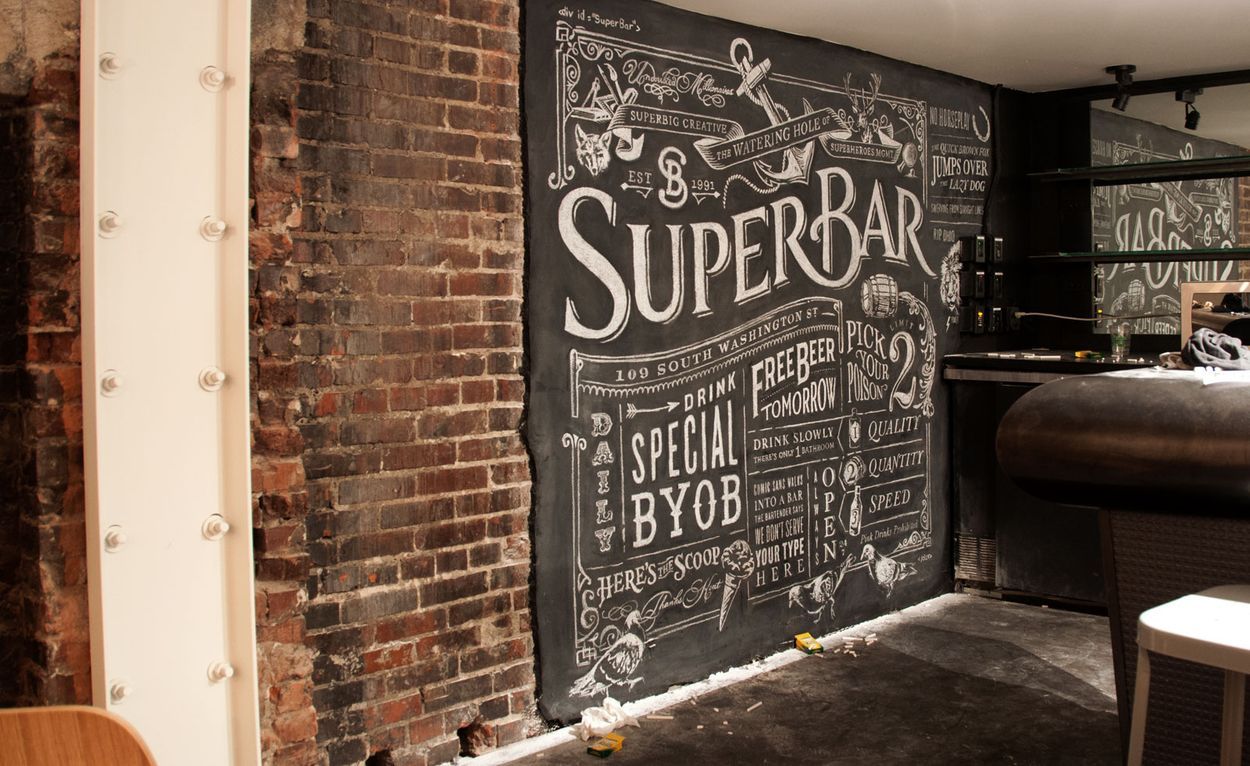 <div id="SuperBar">
Undoubted Millionaires
SUPERBIG CREATIVE
THE WATERING HOLE OF
SUPERHEROES MGMT.
EST SB 1991
SUPERBAR
109 SOUTH WASHINGTON ST
DAILY
DRINK
SPECIAL
BYOB
FREE BEER
TOMORROW
DRINK SLOWLY
THERE'S ONLY 1 BATHROOM
COMIC SANS WALKS
INTO A BAR
THE BARTENDER SAYS
WE DON'T SERVE
YOUR TYPE
HERE
ALWAYS
OPEN
PICK
YOUR
POISON
LIMIT
2
1 QUALITY
2 QUANTITY
SPEED
Pink Drinks Prohibited
HERE'S THE SCOOP
Thanks Kent
NO HORSEPLAY
THE QUICK BROWN FOX
JUMPS OVER
THE LAZY DOG
SWERVING FROM STRAIGHT LINES
RIP OHNO